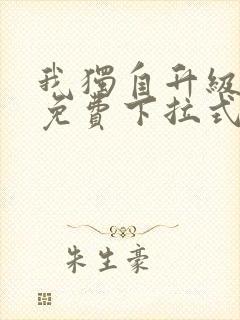 我獨自升級
免費下拉式
朱生豪